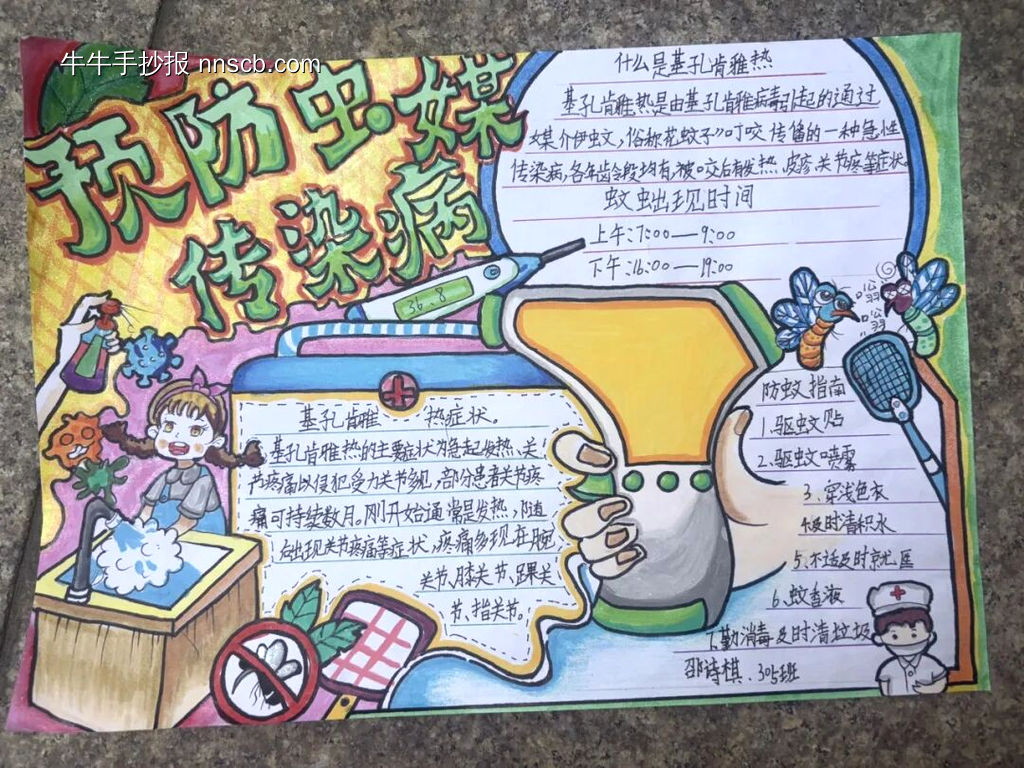 牛牛手抄报 nnscb.com
预防虫媒
传染病
什么是基孔肯雅热
基孔肯雅热是由基孔肯雅病毒引起的通过
媒介伊蚊,俗称花蚊子"叮咬传播的一种急性
传染病,各年龄段均有,被叮咬后有发热 皮疹、关节疼等症状。
蚊虫出现时间
上午:7:00—9:00
下午:16:00—19:00
36.8
嗡
嗡
基孔肯雅 热症状。
基孔肯雅热的主要症状为急起发热、关
节疼痛以侵犯受力关节多见,部分患者关节疼
痛可持续数月。刚开始通常是发热,随
后出现关节疼痛等症状,疼痛多现在腕
关节、膝关节、踝关
节、指关节。
防蚊指南
1.驱蚊贴
2.驱蚊喷雾
3、穿浅色衣
4及时清积水
5、不适及时就医
6、蚊香液
7、勤消毒及时清垃圾
邵诗棋、305班